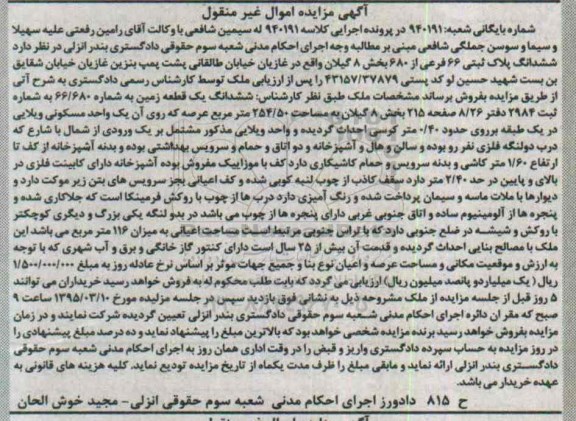 آگهی مزایده اموال غیر منقول
شماره بایگانی شعبه: ۹۴۰۱۹۱ در پرونده اجرایی کلاسه ۹۴۰۱۹۱ له سیمین شافعی با وکالت آقای رامین رفعتی علیه سهیلا
و سیما و سوسن جملگی شافعی مبنی بر مطالبه وجه اجرای احکام مدنی شعبه سوم حقوقی دادگستری بندر انزلی در نظر دارد
ششدانگ پلاک ثبتی ۶۶ فرعی از ۶۸۰ بخش ۸ گیلان واقع در غازیان خیابان طالقانی پشت پمپ بنزین غازیان خیابان شقایق
بن بست شهید حسین لو کد پستی ۴۳۱۵۷/۳۷۸۷۹ را پس از ارزیابی ملک توسط کارشناس رسمی دادگستری به شرح آتی
از طریق مزایده بفروش برساند مشخصات ملک طبق نظر کارشناس: ششدانگ یک قطعه زمین به شماره ۶۶/۶۸۰ به شماره
ثبت ۲۹۸۴ دفتر ۸/۲۶ صفحه ۲۱۵ بخش ۸ گیلان به مساحت ۲۵۴/۵۰ متر مربع عرصه که روی آن یک واحد مسکونی ویلایی
در یک طبقه برروی حدود ۰/۴۰ متر کرسی احداث گردیده و واحد ویلایی مذکور مشتمل بر یک ورودی از شمال با شارع که
درب دولنگه فلزی نفر رو بوده و سالن و هال و آشپزخانه و دو اتاق و حمام و سرویس بهداشتی بوده و بدنه آشپزخانه از کف تا
ارتفاع ۱/۶۰ متر کاشی و بدنه سرویس و حمام کاشیکاری دارد کف با موزاییک مفروش بوده آشپزخانه دارای کابینت فلزی در
بالای و پایین در حد ۲/۴۰ متر دارد سقف کاذب از چوب لنبه کوبی شده و کف اعیانی بجز سرویس های بتن زیر موکت دارد و
دیوارها با ملات ماسه و سیمان پرداخت شده و رنگ آمیزی دارد درب ها از چوب با روکش فرمیکا است که جلاکاری شده و
پنجره ها از آلومینیوم ساده و اتاق جنوبی غربی دارای پنجره ها از چوب می باشد در بدو لنگه یکی بزرگ و دیگری کوچکتر
با روکش و شیشه در ضلع جنوبی دارد که با تراس جنوبی مرتبط است. مساحت اعیانی به میزان ۱۱۶ متر مربع می باشد این
ملک با مصالح بنایی احداث گردیده و قدمت آن بیش از ۲۵ سال است دارای کنتور گاز خانگی و برق و آب شهری که با توجه
به ارزش و موقعیت مکانی و مساحت عرصه و اعیان نوع بنا و جمیع جهات موثر بر اساس نرخ عادله روز به مبلغ ۱/۵۰۰/۰۰۰/۰۰۰
ریال (یک میلیارد و پانصد میلیون ریال) ارزیابی می گردد که بابت طلب محکوم له به فروش خواهد رسید خریداران می توانند
۵ روز قبل از جلسه مزایده از ملک مشروحه ذیل به نشانی فوق بازدید سپس در جلسه مزایده مورخ ۱۳۹۵/۰۳/۱۰ ساعت ۹
صبح که مقر آن دائره اجرای احکام مدنی شعبه سوم حقوقی دادگستری بندر انزلی تعیین گردیده شرکت نمایند و در زمان
مزایده بفروش خواهد رسید برنده مزایده شخصی خواهد بود که بالاترین مبلغ را پیشنهاد نماید و ده درصد مبلغ پیشنهادی را
در روز مزایده به حساب سپرده دادگستری واریز و قبض را در وقت اداری همان روز به اجرای احکام مدنی شعبه سوم حقوقی
دادگستری بندر انزلی ارائه نماید و مابقی مبلغ را ظرف مدت یکماه از تاریخ مزایده تودیع نماید. کلیه هزینه های قانونی به
عهده خریدار می باشد.
ح ۸۱۵ دادورز اجرای احکام مدنی شعبه سوم حقوقی انزلی- مجید خوش الحان